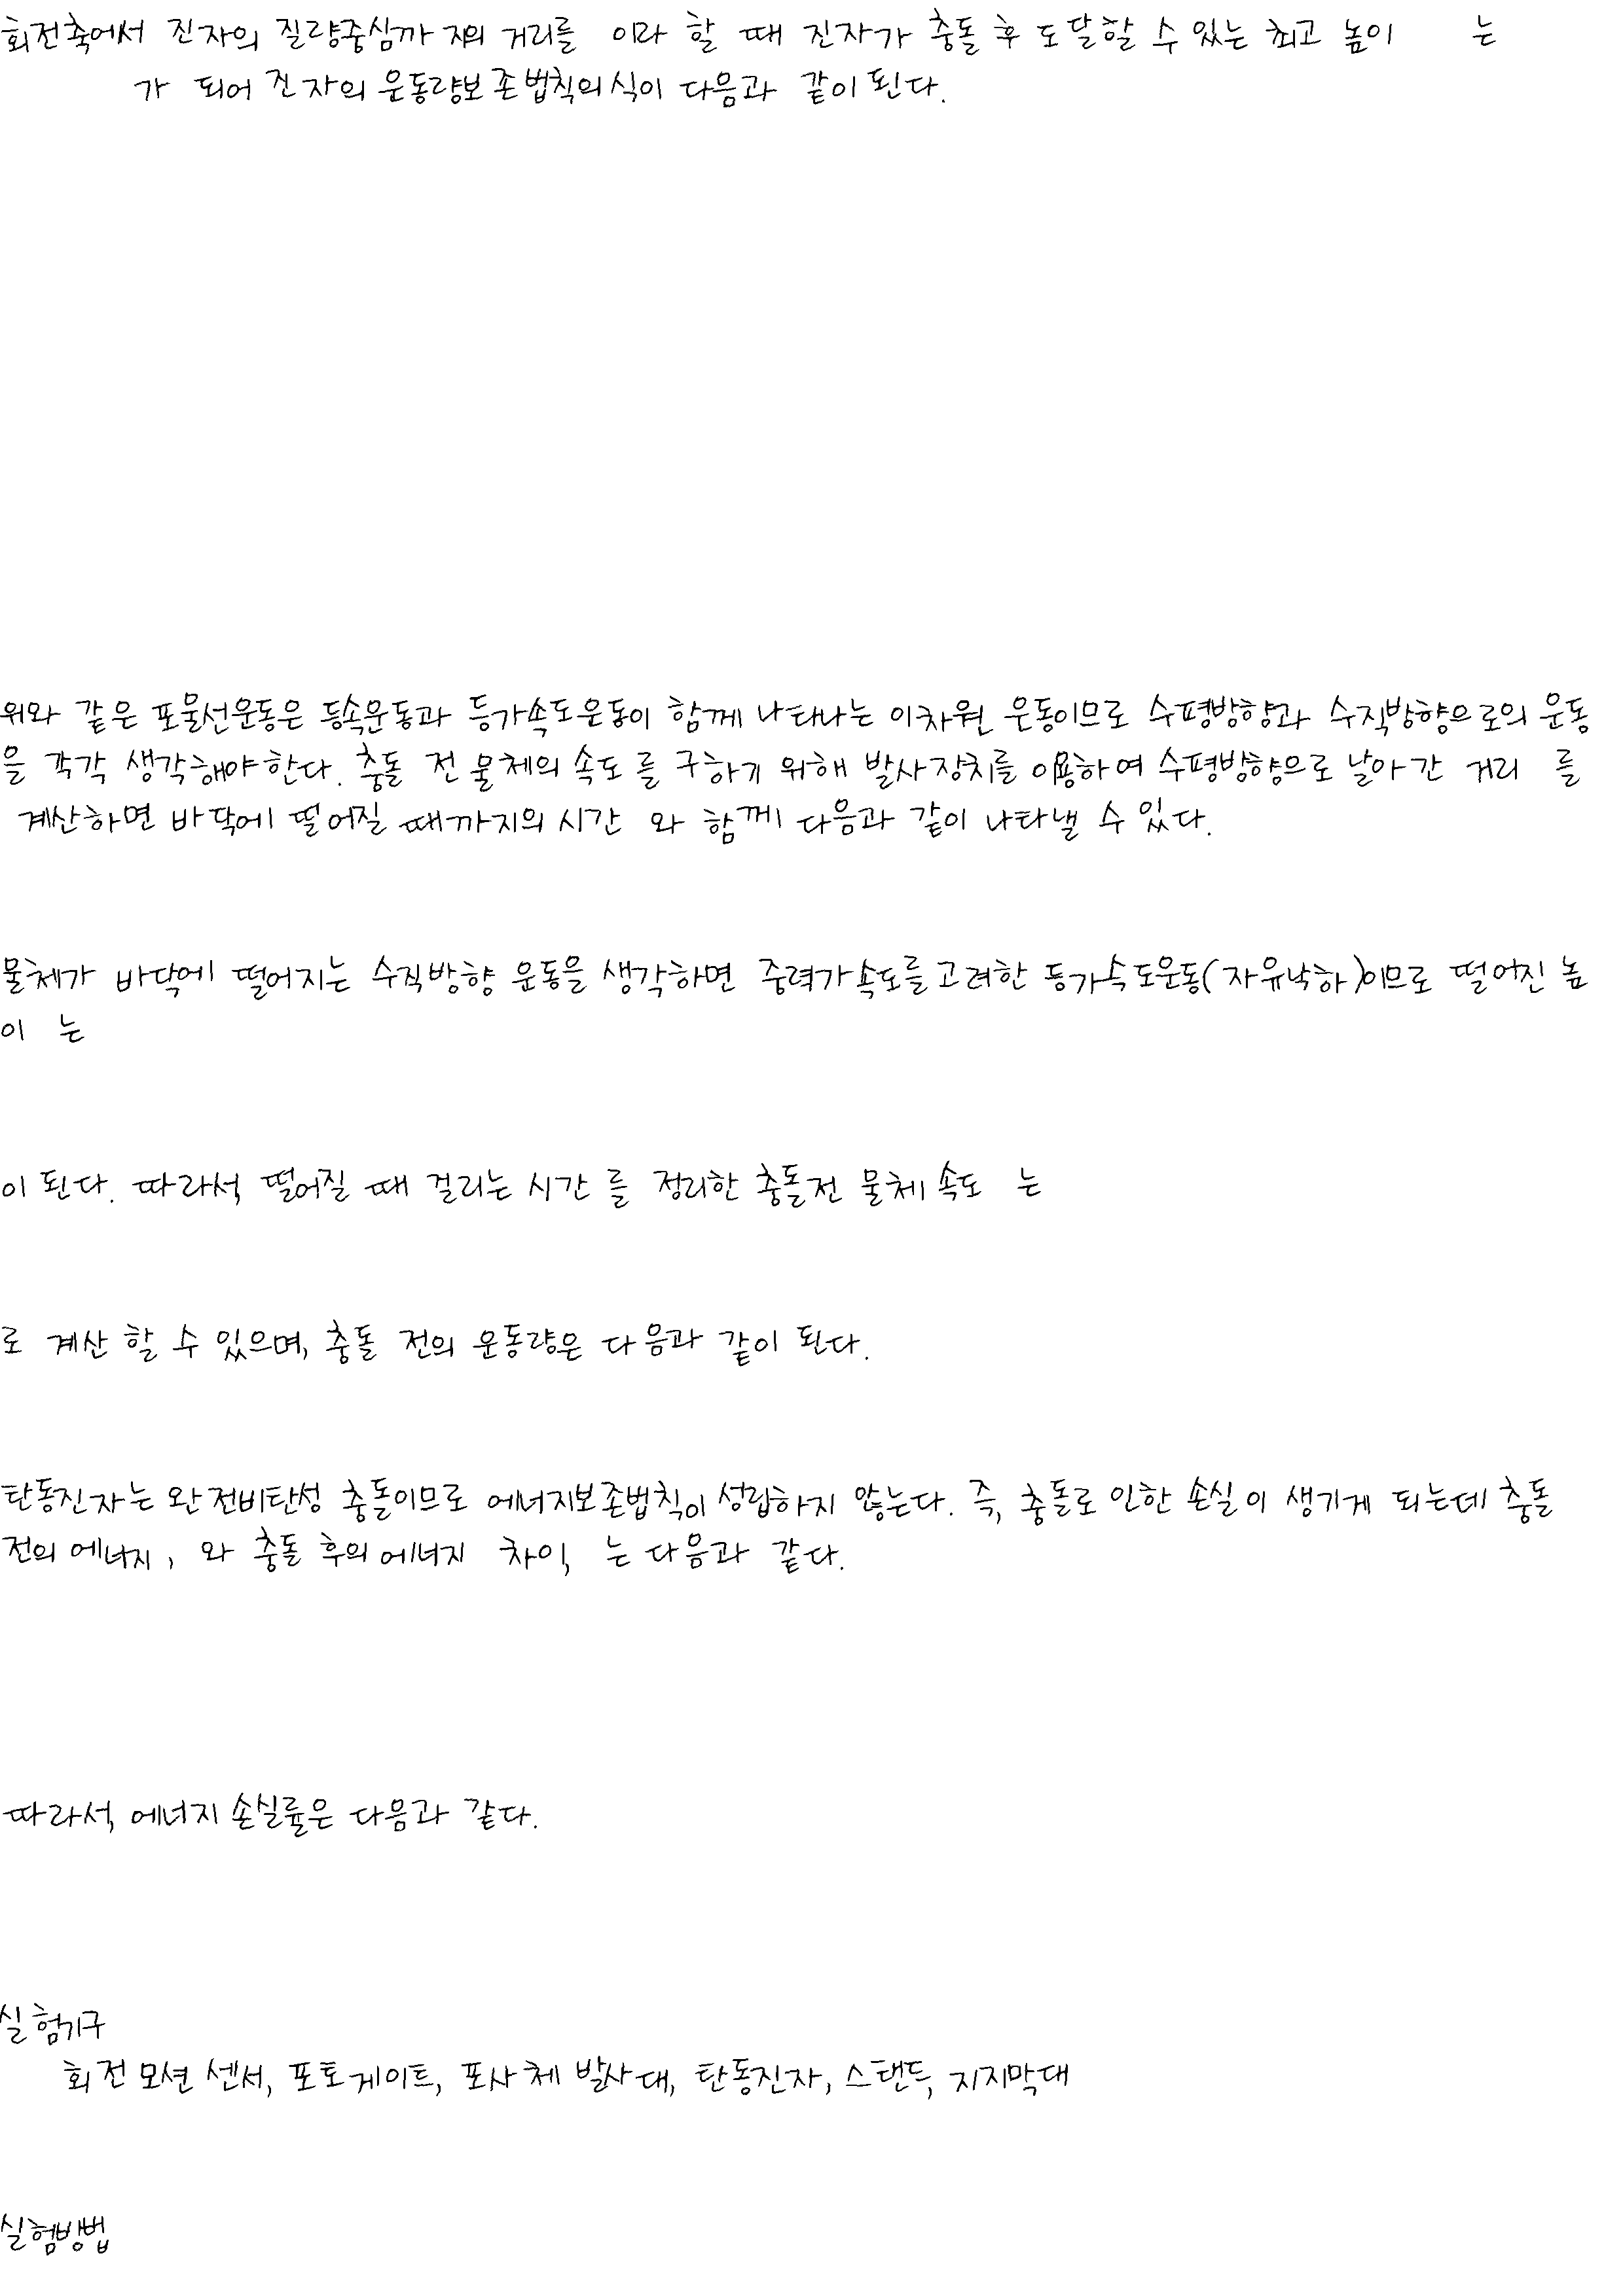 회전축에서 진자의 질량중심까지의 거리를 이라 할 때 진자가 충돌 후 도달할 수 있는 최고 높이 는
가 되어 진자의 운동량보존법칙의 식이 다음과 같이 된다.
위와 같은 포물선운동은 등속운동과 등가속도운동이 함께 나타나는 이차원 운동이므로 수평방향과 수직방향으로의 운동
을 각각 생각해야 한다. 충돌 전 물체의 속도를 구하기 위해 발사장치를 이용하여 수평방향으로 날아간 거리 를
계산하면 바닥에 떨어질 때까지의 시간 와 함께 다음과 같이 나타낼 수 있다.
물체가 바닥에 떨어지는 수직방향 운동을 생각하면 중력가속도를 고려한 등가속도운동(자유낙하)이므로 떨어진 높
이 는
이 된다. 따라서, 떨어질 때 걸리는 시간 를 정리한 충돌전 물체 속도 는
로 계산 할 수 있으며, 충돌 전의 운동량은 다음과 같이 된다.
탄동진자는 완전비탄성 충돌이므로 에너지보존법칙이 성립하지 않는다. 즉, 충돌로 인한 손실이 생기게 되는데 충돌
전의 에너지, 와 충돌 후의 에너지 차이, 는 다음과 같다.
따라서, 에너지 손실률은 다음과 같다.
실험기구
회전 모션 센서, 포토게이트, 포사체 발사대, 탄동진자, 스탠드, 지지막대
실험방법